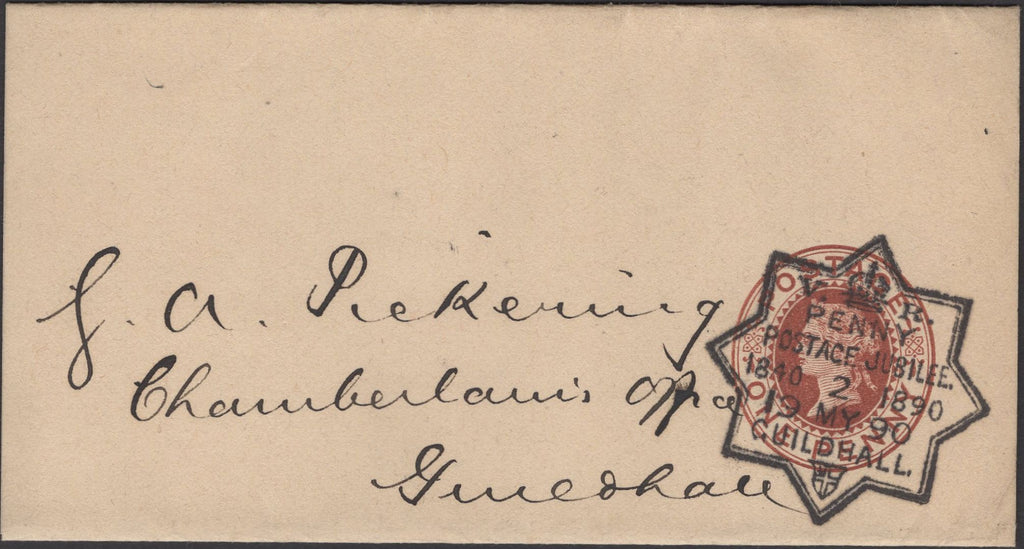 J. A. Pickering
Chamberlain's Office
Guildhall
V. R.
PENNY
POSTAGE JUBILEE.
1840 2 1890
19 MY 90
GUILDHALL.
POSTAGE
ONE PENNY